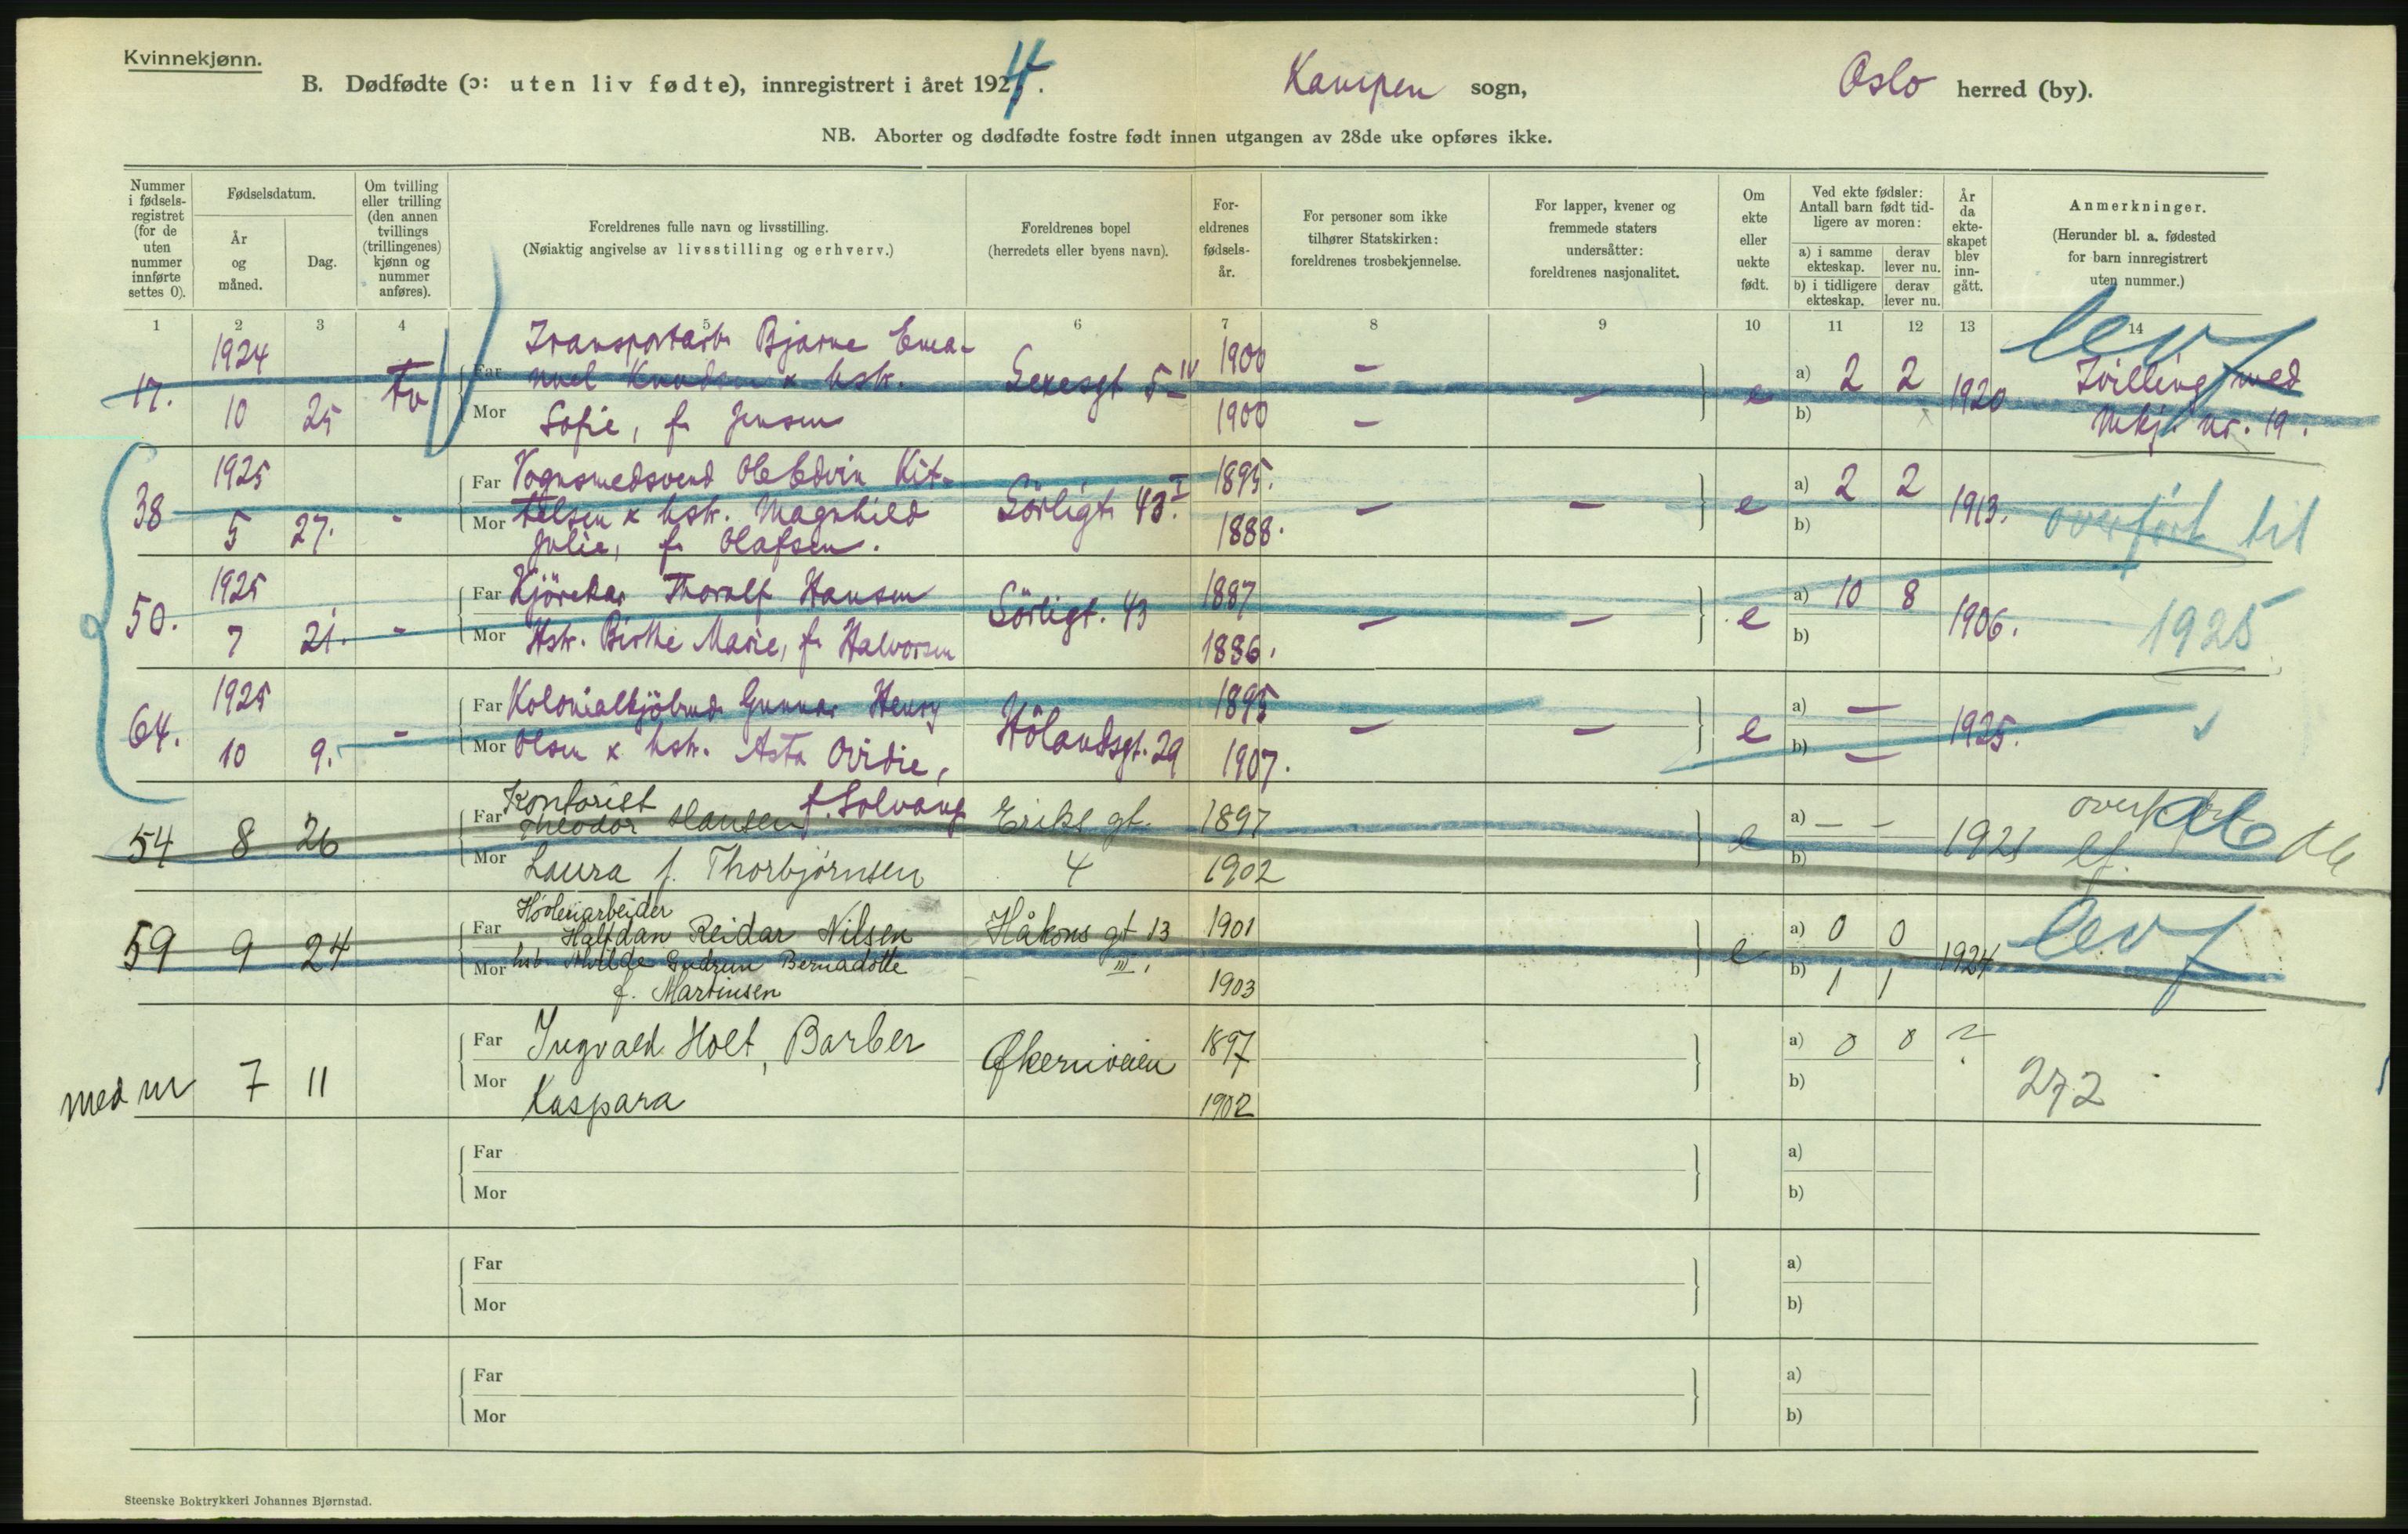 Kvinnekjønn.
B. Dødfødte (ɔ: uten liv fødte), innregistrert i året 1924. Kampen sogn, Oslo herred (by).
NB. Aborter og dødfødte fostre født innen utgangen av 28de uke opføres ikke.
Nummer i fødsels-registret (for de uten nummer innførte settes 0).
Fødselsdatum.
År og måned.
Dag.
Om tvilling eller trilling (den annen tvillings (trillingenes) kjønn og nummer anføres).
Foreldrenes fulle navn og livsstilling.
(Nøiaktig angivelse av livsstilling og erhverv.)
Foreldrenes bopel
(herredets eller byens navn).
For-eldrenes fødsels-år.
For personer som ikke tilhører Statskirken: foreldrenes trosbekjennelse.
For lapper, kvener og fremmede staters undersåtter: foreldrenes nasjonalitet.
Om ekte eller uekte født.
Ved ekte fødsler: Antall barn født tid-ligere av moren:
a) i samme ekteskap. derav lever nu.
b) i tidligere ekteskap. derav lever nu.
År da ekte-skapet blev inn-gått.
Anmerkninger.
(Herunder bl. a. fødested for barn innregistrert uten nummer.)
1 2 3 4 5 6 7 8 9 10 11 12 13 14
1924 Transportarb. Bjarne Ema- 1900 – levf
17. Tv Far nuel Knudsen & hstr. 5 IV – e a) 2 2 1920 Tvilling med
10 25 Mor Sofie, f. Jensen 1900 – b) Mkj. nr. 19.
1925 Far Vognsmedsvend Ole Edvin Kit- 1895. a) 2 2
38 - telsen & hstr. Magnhild Sörligt. 43 I. – – e 1913. overført til
5 27. Mor Julie, f. Olafsen. 1888. b)
1925 Far Kjörekar Thoralf Hansen 1887 a) 10 8
50. - Sörligt. 43 – – e 1906. 1925
7 21. Mor Hstr. Birthe Marie, f. Halvorsen 1886. b)
1925 Far Kolonialkjöbmd. Gunnar Henry 1895 a) –
64. - Hölandsgt. 29 – – e 1925.
10 9. Mor Olsen & hstr. Asta Ovidie, 1907. b) –
f. Solvang
Kontorist
54 8 26 Far Theodor Hansen Eriks gt. 1897 e a) – – 1921
Mor Laura f. Thorbjørnsen 4 1902 b)
Far Halfdan Reidar Nilsen Håkons gt 13 1901 a) 0 0
59 9 24 III. e 1924 levf
Mor hstr. Gudrun Bernadotte b) 1 1
f. Martinsen 1903
Far Ingvald Holt, Barber 1897 a) 0 0 ?
med nr 7 11 Økernveien 272
Mor Kaspara 1902 b)
Far a)
Mor b)
Far a)
Mor b)
Far a)
Mor b)
Steenske Boktrykkeri Johannes Bjørnstad.